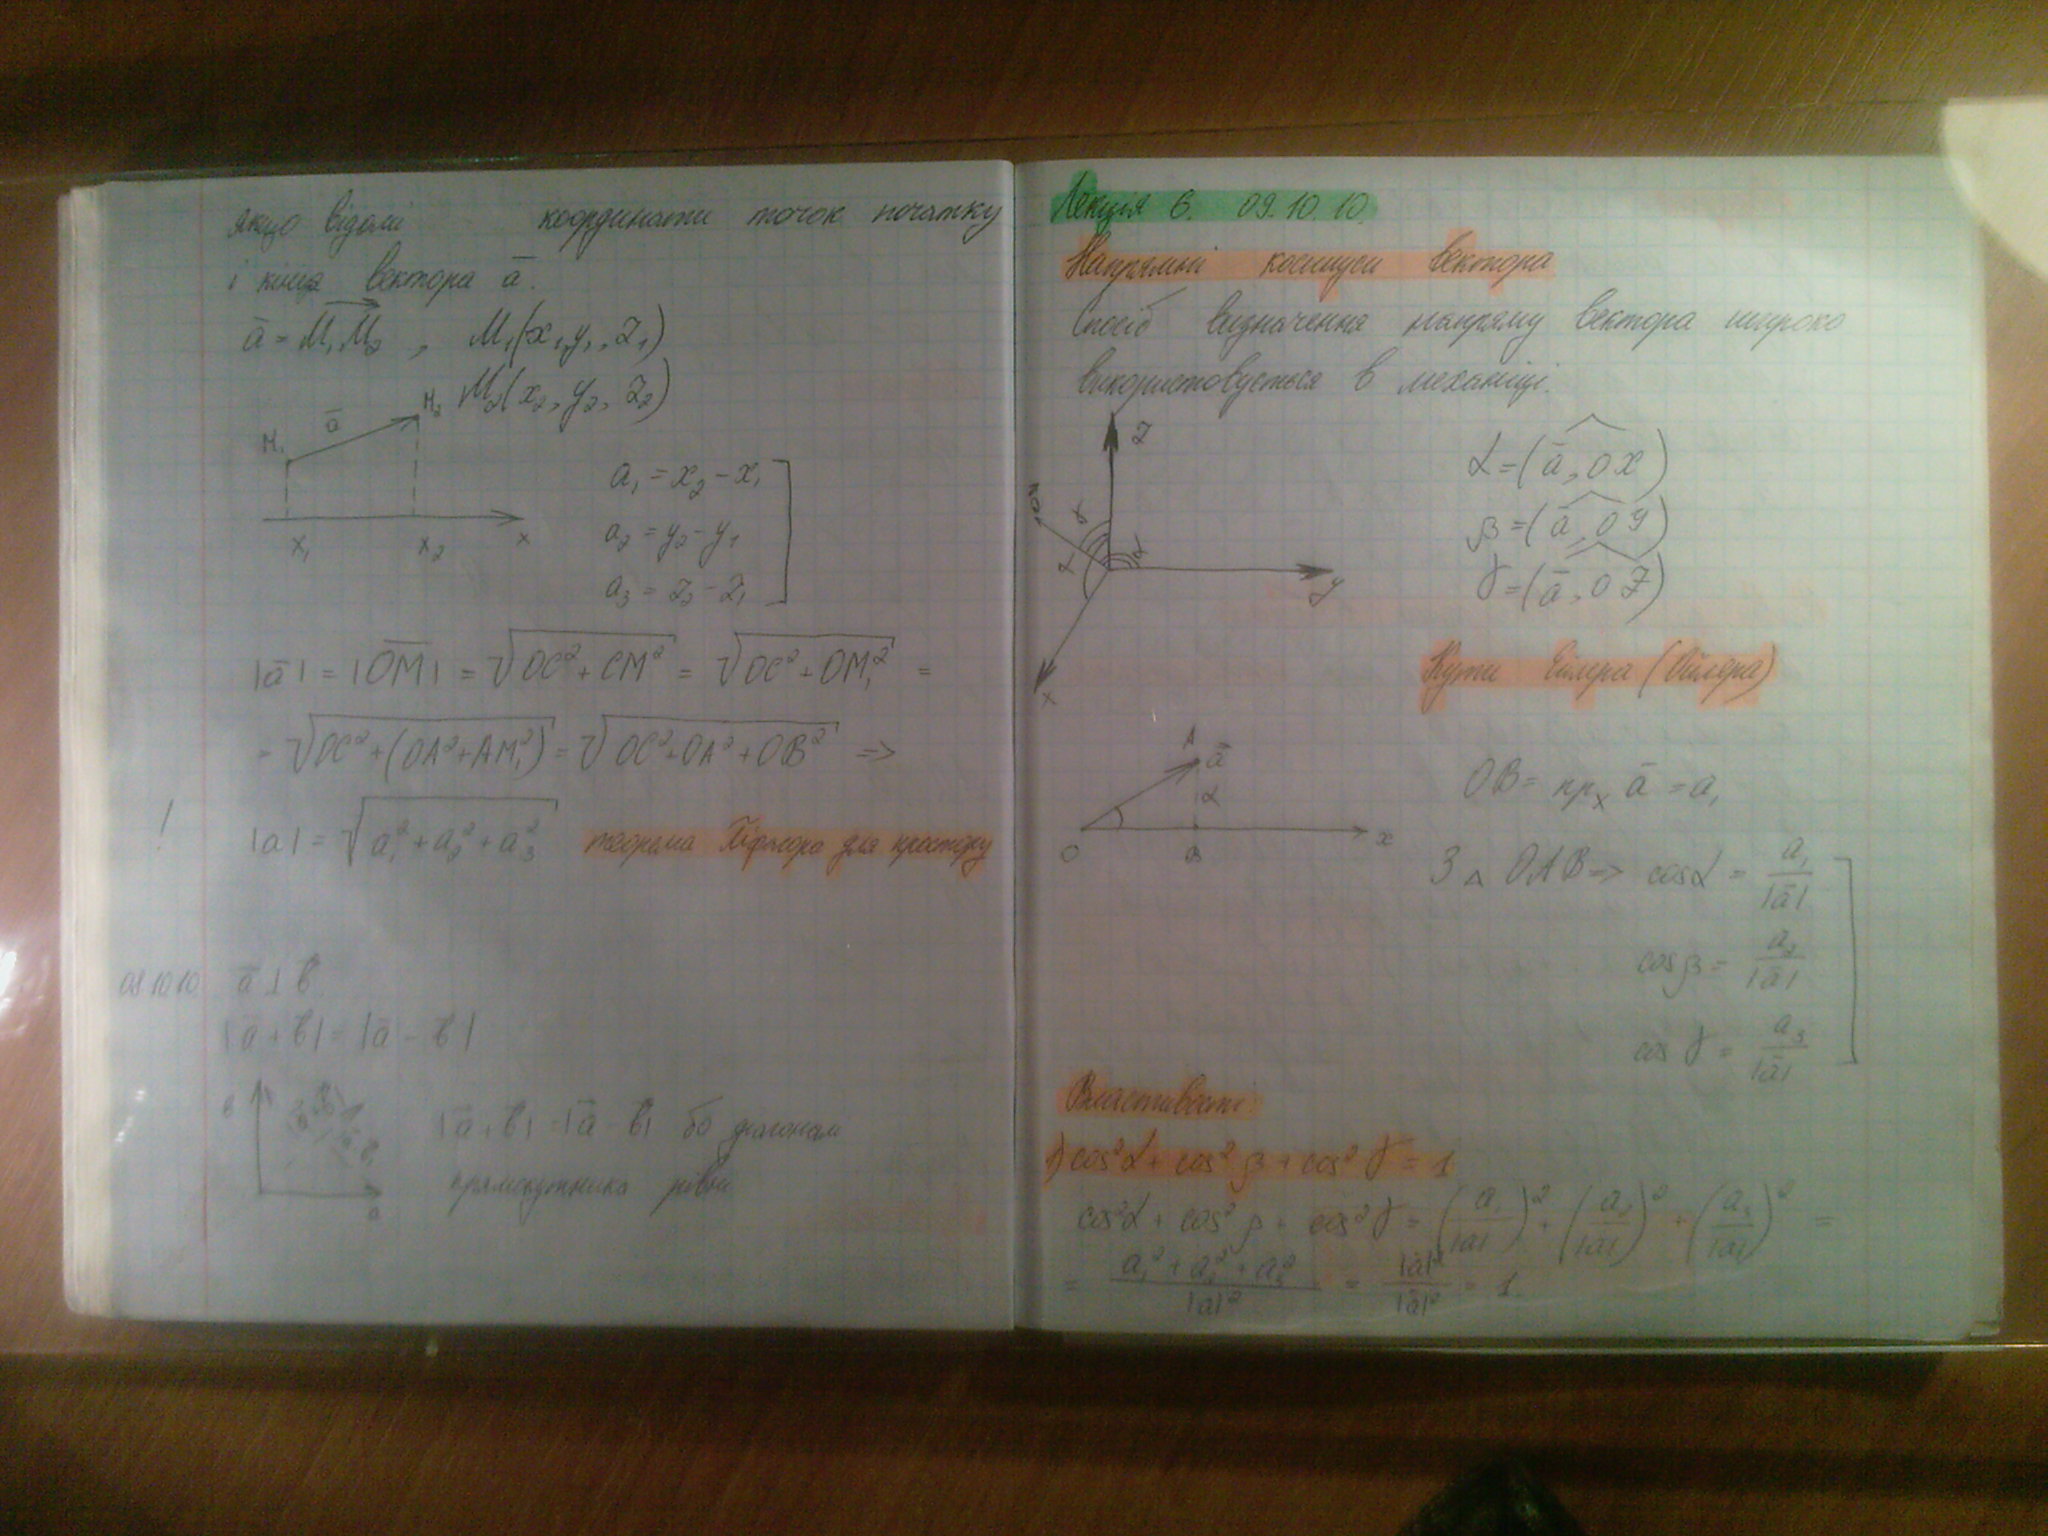 якщо відомі координати точок початку
і кінця вектора ā.
ā = M₁M₂ , M₁(x₁, y₁, z₁)
M₂(x₂, y₂, z₂)
M₁ ā M₂
x₁ x₂ x
a₁ = x₂ - x₁
a₂ = y₂ - y₁
a₃ = z₂ - z₁
|ā| = |OM| = √(OC² + CM²) = √(OC² + OM₁²) =
= √(OC² + (OA² + AM₁²)) = √(OC² + OA² + OB²) =>
! |a| = √(a₁² + a₂² + a₃²) теорема Піфагора для простору
08.10.10 ā ⊥ b̄
|ā + b̄| = |ā - b̄|
|ā + b̄| = |ā - b̄| бо діагоналі
прямокутника рівні
Лекція 6. 09.10.10.
Напрямні косинуси вектора
Спосіб визначення напряму вектора широко
використовується в механіці.
z
y
x
α = (ā, OX)
β = (ā, OY)
γ = (ā, OZ)
Кути Ейлера (Ойлера)
A ā
α
O B x
OB = прₓ ā = a₁
З △ OAB => cos α = a₁/|ā|
cos β = a₂/|ā|
cos γ = a₃/|ā|
Властивості:
1) cos²α + cos²β + cos²γ = 1
cos²α + cos²β + cos²γ = (a₁/|a|)² + (a₂/|a|)² + (a₃/|a|)² =
= (a₁² + a₂² + a₃²)/|a|² = |ā|²/|ā|² = 1.